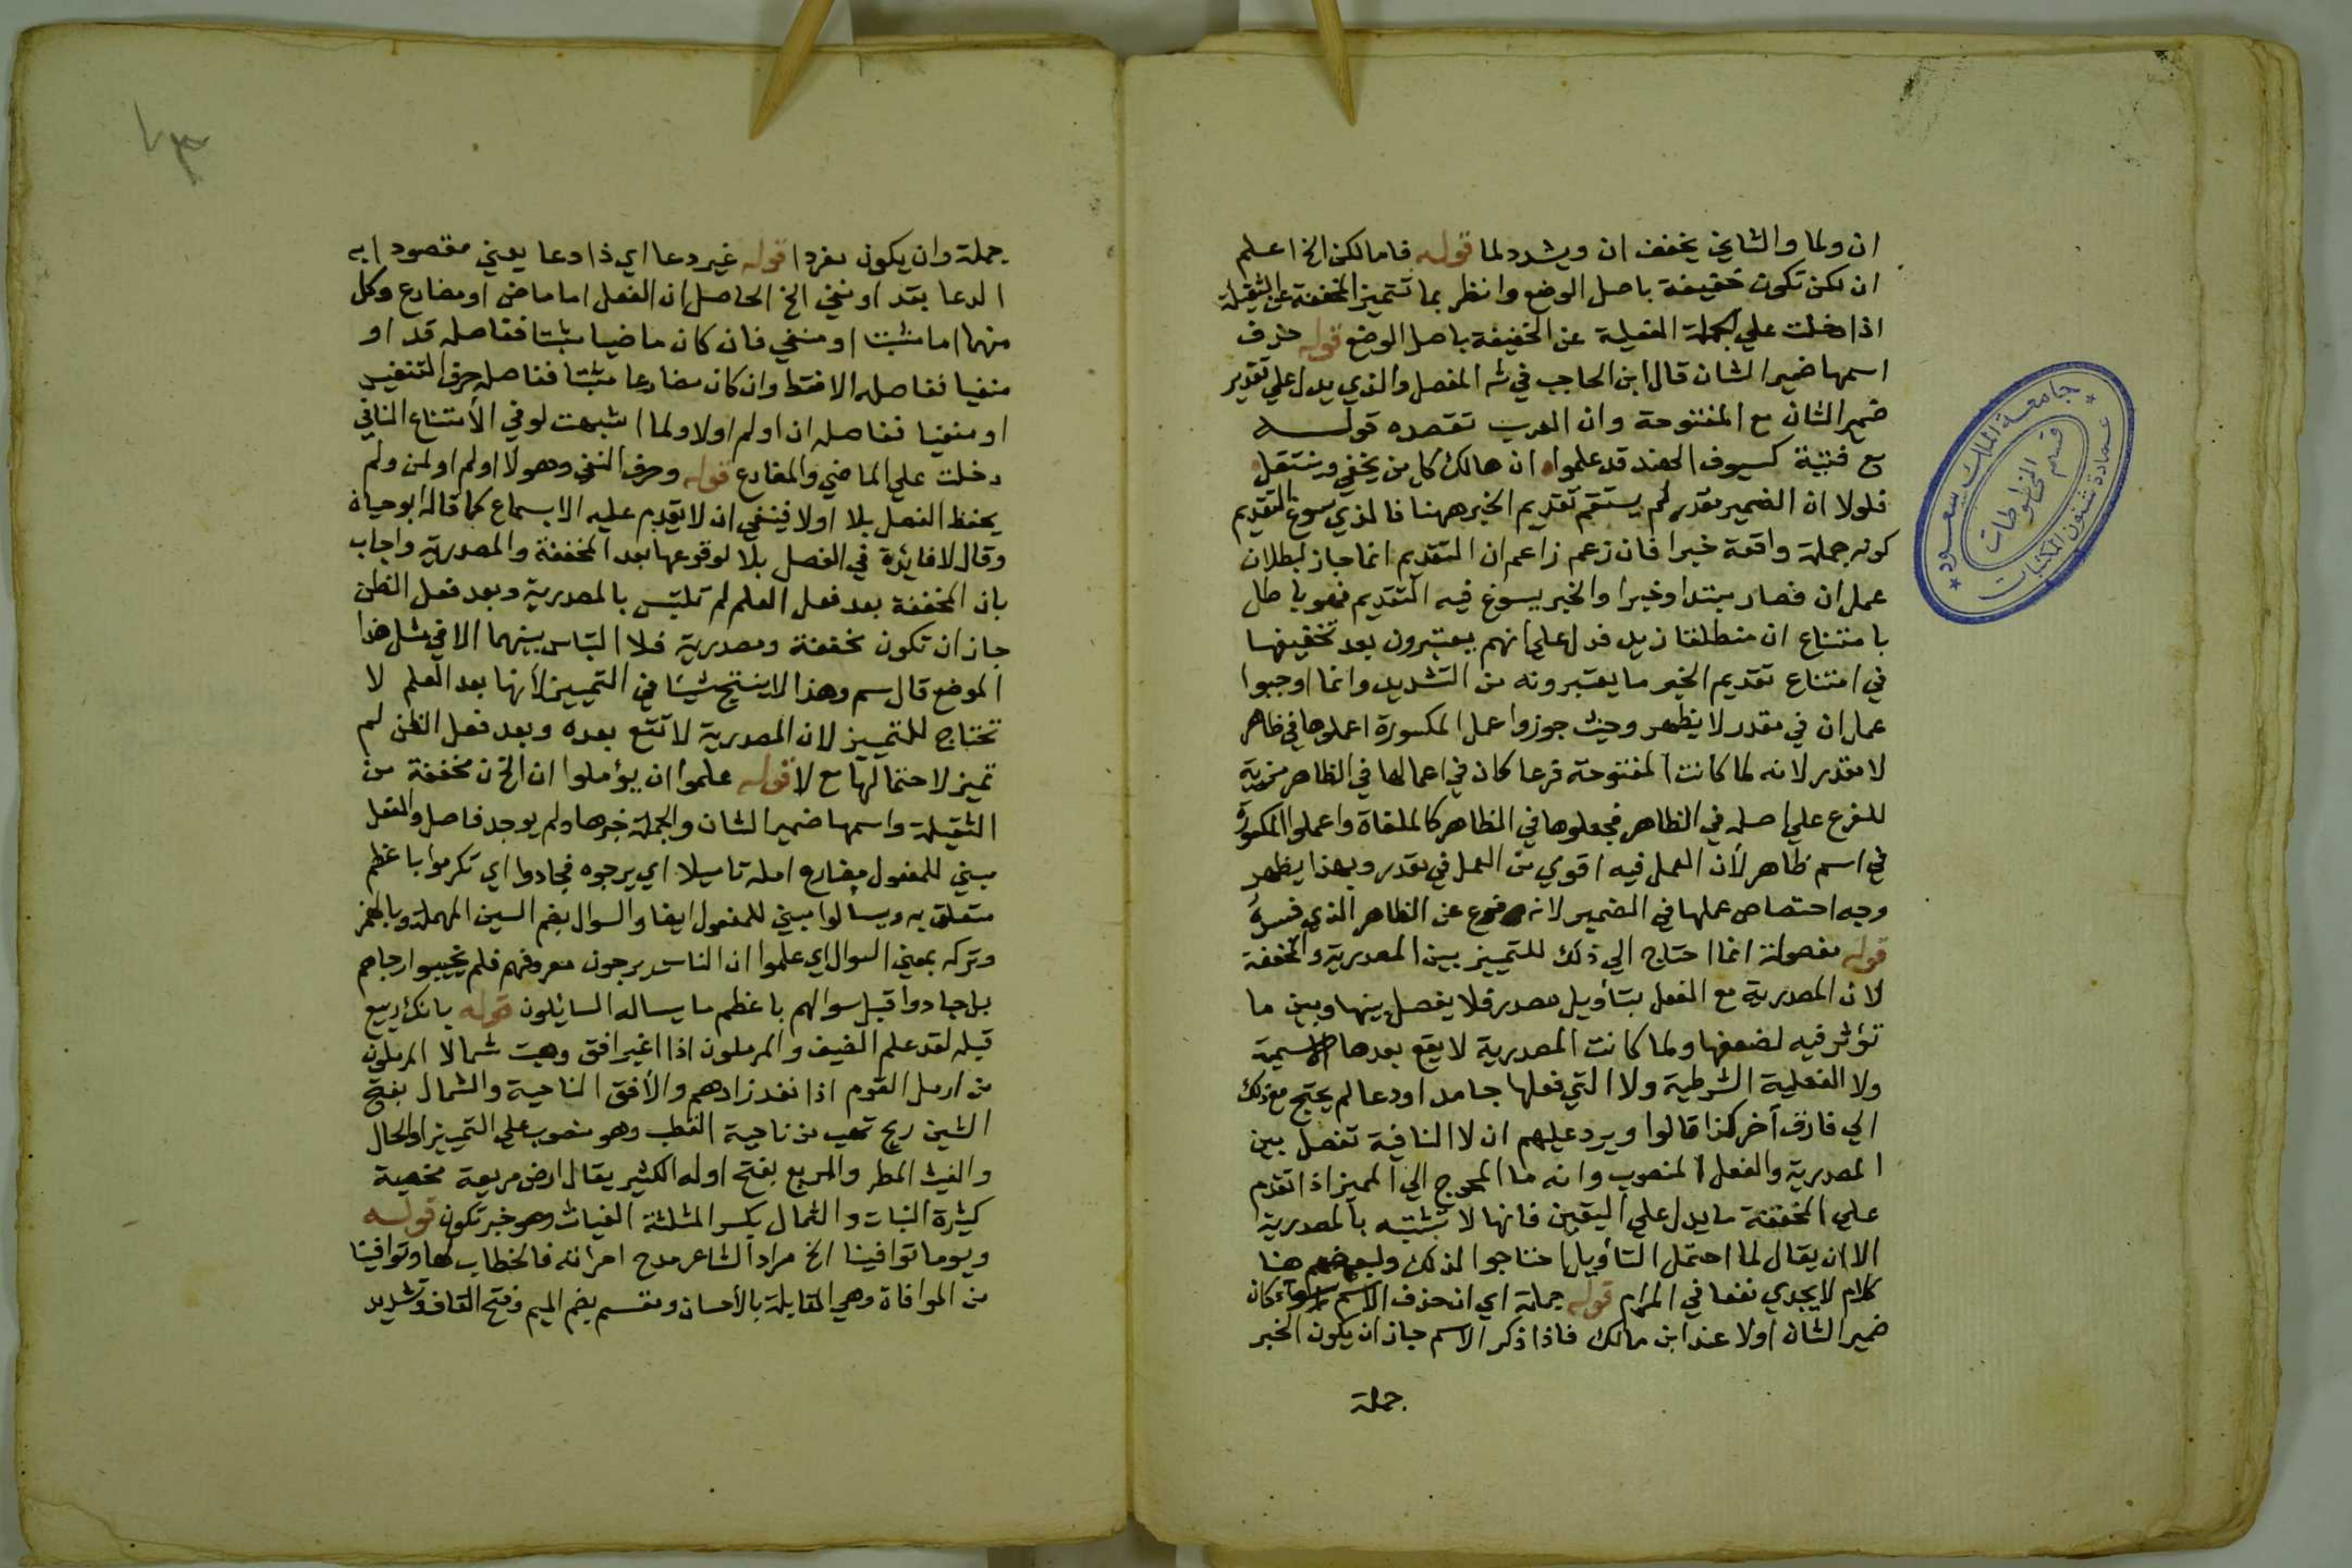 ان ولما والثاني يخفف ان ويشدد لما قوله فاما لكن الخ اعلم
ان لكن تكون خفيفة باصل الوضع وانظر بما تتميز المخففة عن الثقيلة
اذا دخلت علي الجملة الفعلية عن الخفيفة باصل الوضع قوله حذف
اسمها ضمير الشان قال ابن الحاجب في شه المفصل والذي يدل علي تقدير
ضمير الشان مع المفتوحة وان العرب تقصده قوله
مع فتية كسيوف الهند قد علموا ان هالك كل من يخفي وينتعل
فلولا ان الضمير مقدر لم يستقم تقديم الخبر ههنا فالذي سوغ التقديم
كونه جملة واقعة خبرا فان زعم زاعم ان التقديم انما جاز لبطلان
عمل ان فصار مبتدا وخبرا والخبر يسوغ فيه التقديم فهو باطل
بامتناع ان منطلقا زيد فدل علي انهم يعتبرون بعد تخفيفها
في امتناع تقديم الخبر ما يعتبرونه من التشديد وانما اوجبوا
عمل ان في مقدر لا يظهر وحيث جوزوا عمل المكسورة اعملوها في ظاهر
لا مقدر لانه لما كانت المفتوحة فرعا كان في اعمالها في الظاهر مزية
للفرع علي اصله في الظاهر فجعلوها في الظاهر كالملغاة واعملوا المكسورة
في اسم ظاهر لأن العمل فيه اقوي من العمل في مقدر وبهذا يظهر
وجه اختصاص عملها في الضمير لانه فرع عن الظاهر الذي فسره
قوله مفصولة انما احتاج الي ذلك للتمييز بين المصدرية والمخففة
لان المصدرية مع الفعل بتأويل مصدر فلا يفصل بينها وبين ما
تؤثر فيه لضعفها ولما كانت المصدرية لا يقع بعدها الاسمية
ولا الفعلية الشرطية ولا التي فعلها جامد او دعا لم يحتج مع ذلك
الي فارق آخر كذا قالوا ويرد عليهم ان لا النافية تفصل بين
المصدرية والفعل المنصوب وانه ما المحوج الي المميز اذا تقدم
علي المخففة ما يدل علي اليقين فانها لا تشتبه بالمصدرية
الا ان يقال لما احتمل التأويل احتاجوا لذلك ولبعضهم هنا
كلام لا يجدي نفعا في المرام قوله جملة اي ان حذف الاسم سواء كان
ضمير الشان اولا عند ابن مالك فاذا ذكر الاسم جاز ان يكون الخبر
جملة
جامعة الملك سعود
عمادة شئون المكتبات
قسم المخطوطات
٧٣
جملة وان يكون مفردا قوله غير دعا اي ذا دعا يعني مقصودا به
الدعا بقد او نفي الخ الحاصل ان الفعل اما ماض او مضارع وكل
منهما اما مثبت او منفي فان كان ماضيا مثبتا ففاصله قد او
منفيا ففاصله لا فقط وان كان مضارعا مثبتا ففاصله حرف التنفيس
او منفيا ففاصله ان او لم او لا ولما اشبهت لو في الأمتناع النافي
دخلت علي الماضي والمضارع قوله وحرف النفي وهو لا او لم او لن ولم
يحفظ الفصل بلا او لا فينبغي ان لا يقدم عليه الا بسماع كما قاله ابو حياة
وقال لا فايدة في الفصل بلا لوقوعها بعد المخففة والمصدرية واجاب
بان المخففة بعد فعل العلم لم تلتبس بالمصدرية وبعد فعل الظن
جاز ان تكون مخففة ومصدرية فلا التباس بينهما الا في مثل هذا
الموضع قال سم وهذا لا ينتج شيئا في التمييز لأنها بعد العلم لا
تحتاج للتمييز لان المصدرية لا تقع بعده وبعد فعل الظن لم
تميز لاحتمالها مع لا قوله علموا ان يؤملوا ان الخ ن مخففة من
الثقيلة واسمها ضمير الشان والجملة خبرها ولم يوجد فاصل والفعل
مبني للمفعول مضارع امله تاميلا اي يرجوه فجادوا اي تكرموا باعظم
متعلق به ويسالوا مبني للمفعول ايضا والسوال بضم السين المهملة وبالهمز
وتركه بمعني السوال اي علموا ان الناس يرجون معروفهم فلم يخيبوا رجاهم
بل جادوا قبل سوالهم باعظم ما يساله السائلون قوله بانك ربيع
قبله لقد علم الضيف والمرملون اذا اغبر افق وهبت شمالا المرملون
من ارمل القوم اذا نفد زادهم والأفق الناحية والشمال بفتح
الشين ريح تهب من ناحية القطب وهو منصوب علي التمييز او الحال
والغيث المطر والمريع بفتح اوله الكثير يقال ارض مريعة مخصبة
كثيرة النبات والثمال بكسر المثلثة الغياث وهو خبر تكون قوله
ويوما توافينا الخ مراد الشاعر مدح امراته فالخطاب لها وتوافينا
من الموافاة وهي المقابلة بالأحسان ومقسم بضم الميم وفتح القاف وتشديد